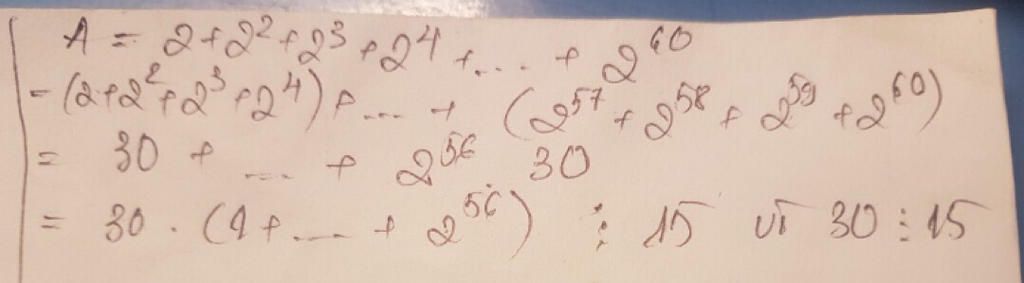 A = 2+2²+2³+2⁴+....+2⁶⁰
=(2+2²+2³+2⁴)+....+(2⁵⁷+2⁵⁸+2⁵⁹+2⁶⁰)
= 30 + .... + 2⁵⁶.30
= 30.(1+....+2⁵⁶) ⋮ 15 vì 30 ⋮ 15